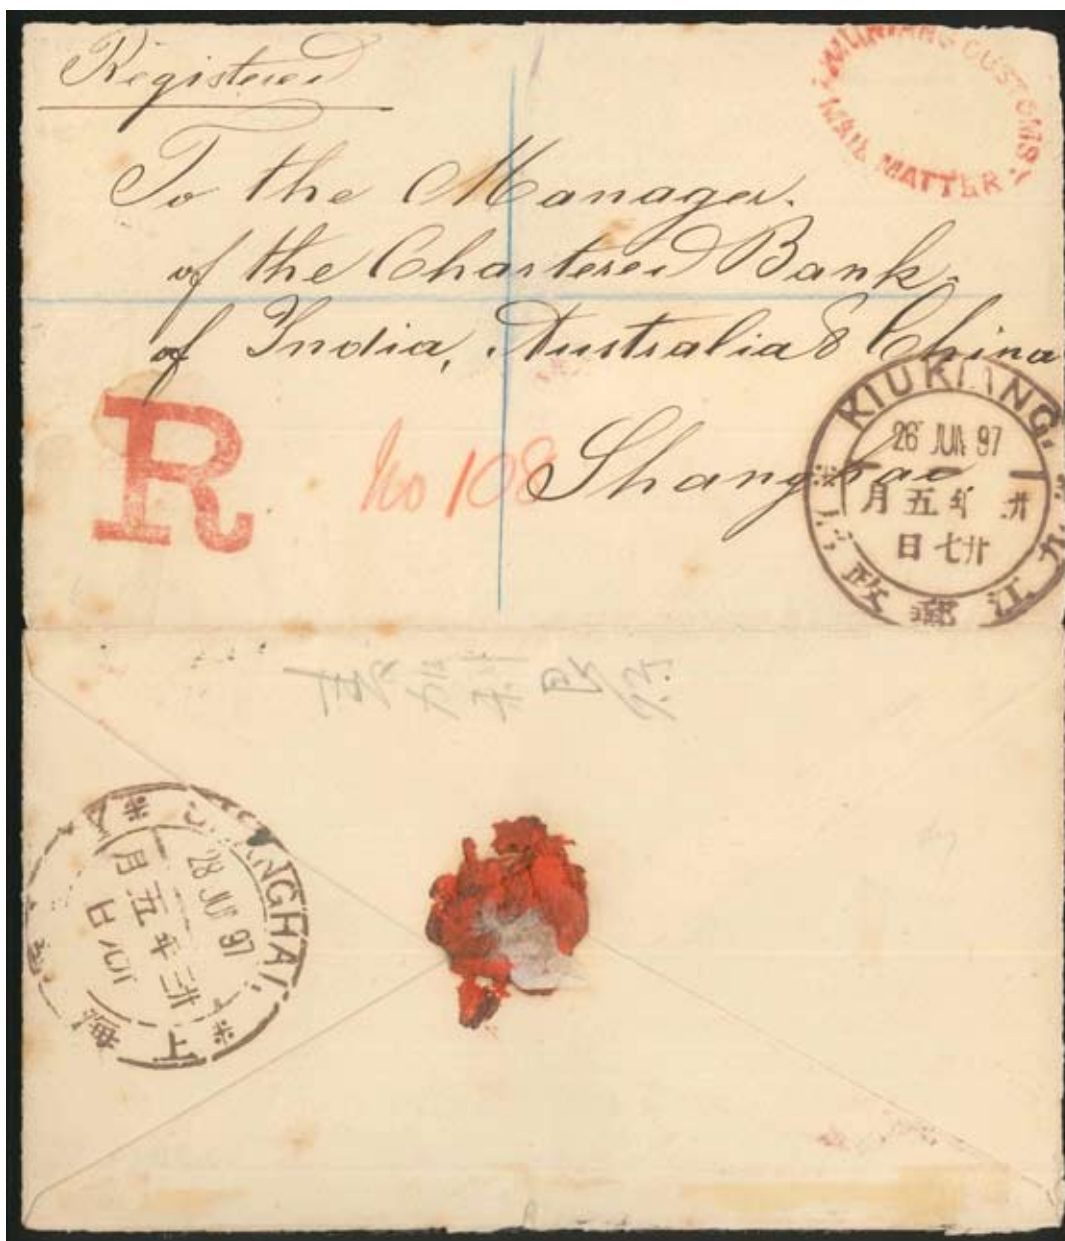 Registered
KIUKIANG CUSTOMS
MAIL MATTER
To the Manager.
of the Chartered Bank
of India, Australia & China
Shanghai
R
No 108
KIUKIANG.
26 JUN 97
月五年
日七廿
九江郵政
SHANGHAI.
28 JUN 97
月五年三廿
日
上海